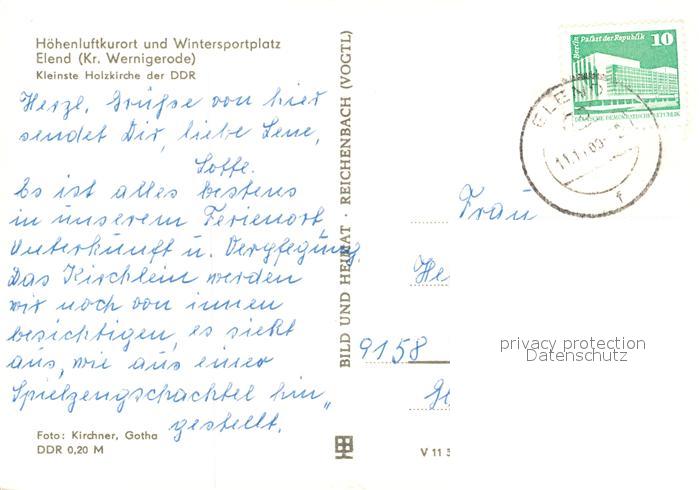 Höhenluftkurort und Wintersportplatz
Elend (Kr. Wernigerode)
Kleinste Holzkirche der DDR
Herzl. Grüße von hier
sendet Dir, liebe Lene,
Lotte.
Es ist alles bestens
in unserem Ferienort
Unterkunft u. Verpflegung.
Das Kirchlein werden
wir noch von innen
besichtigen, es sieht
aus, wie aus einer
Spielzeugschachtel hin"
gestellt.
Foto: Kirchner, Gotha
DDR 0,20 M
BILD UND HEIMAT · REICHENBACH (VOGTL)
V 11
Berlin Palast der Republik 10
DEUTSCHE DEMOKRATISCHE REPUBLIK
ELEND
Frau
He
9158
privacy protection
Datenschutz